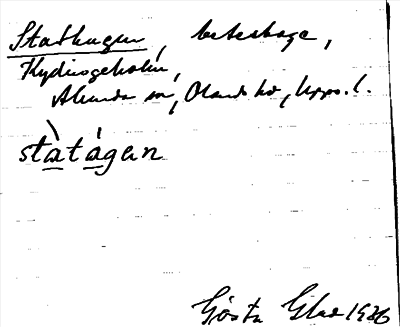 Stathagen, beteshage,
Kydingeholm,
Alunda sn, Olands hd, Upps. l.
stàtágen
Gösta Gilad 1936